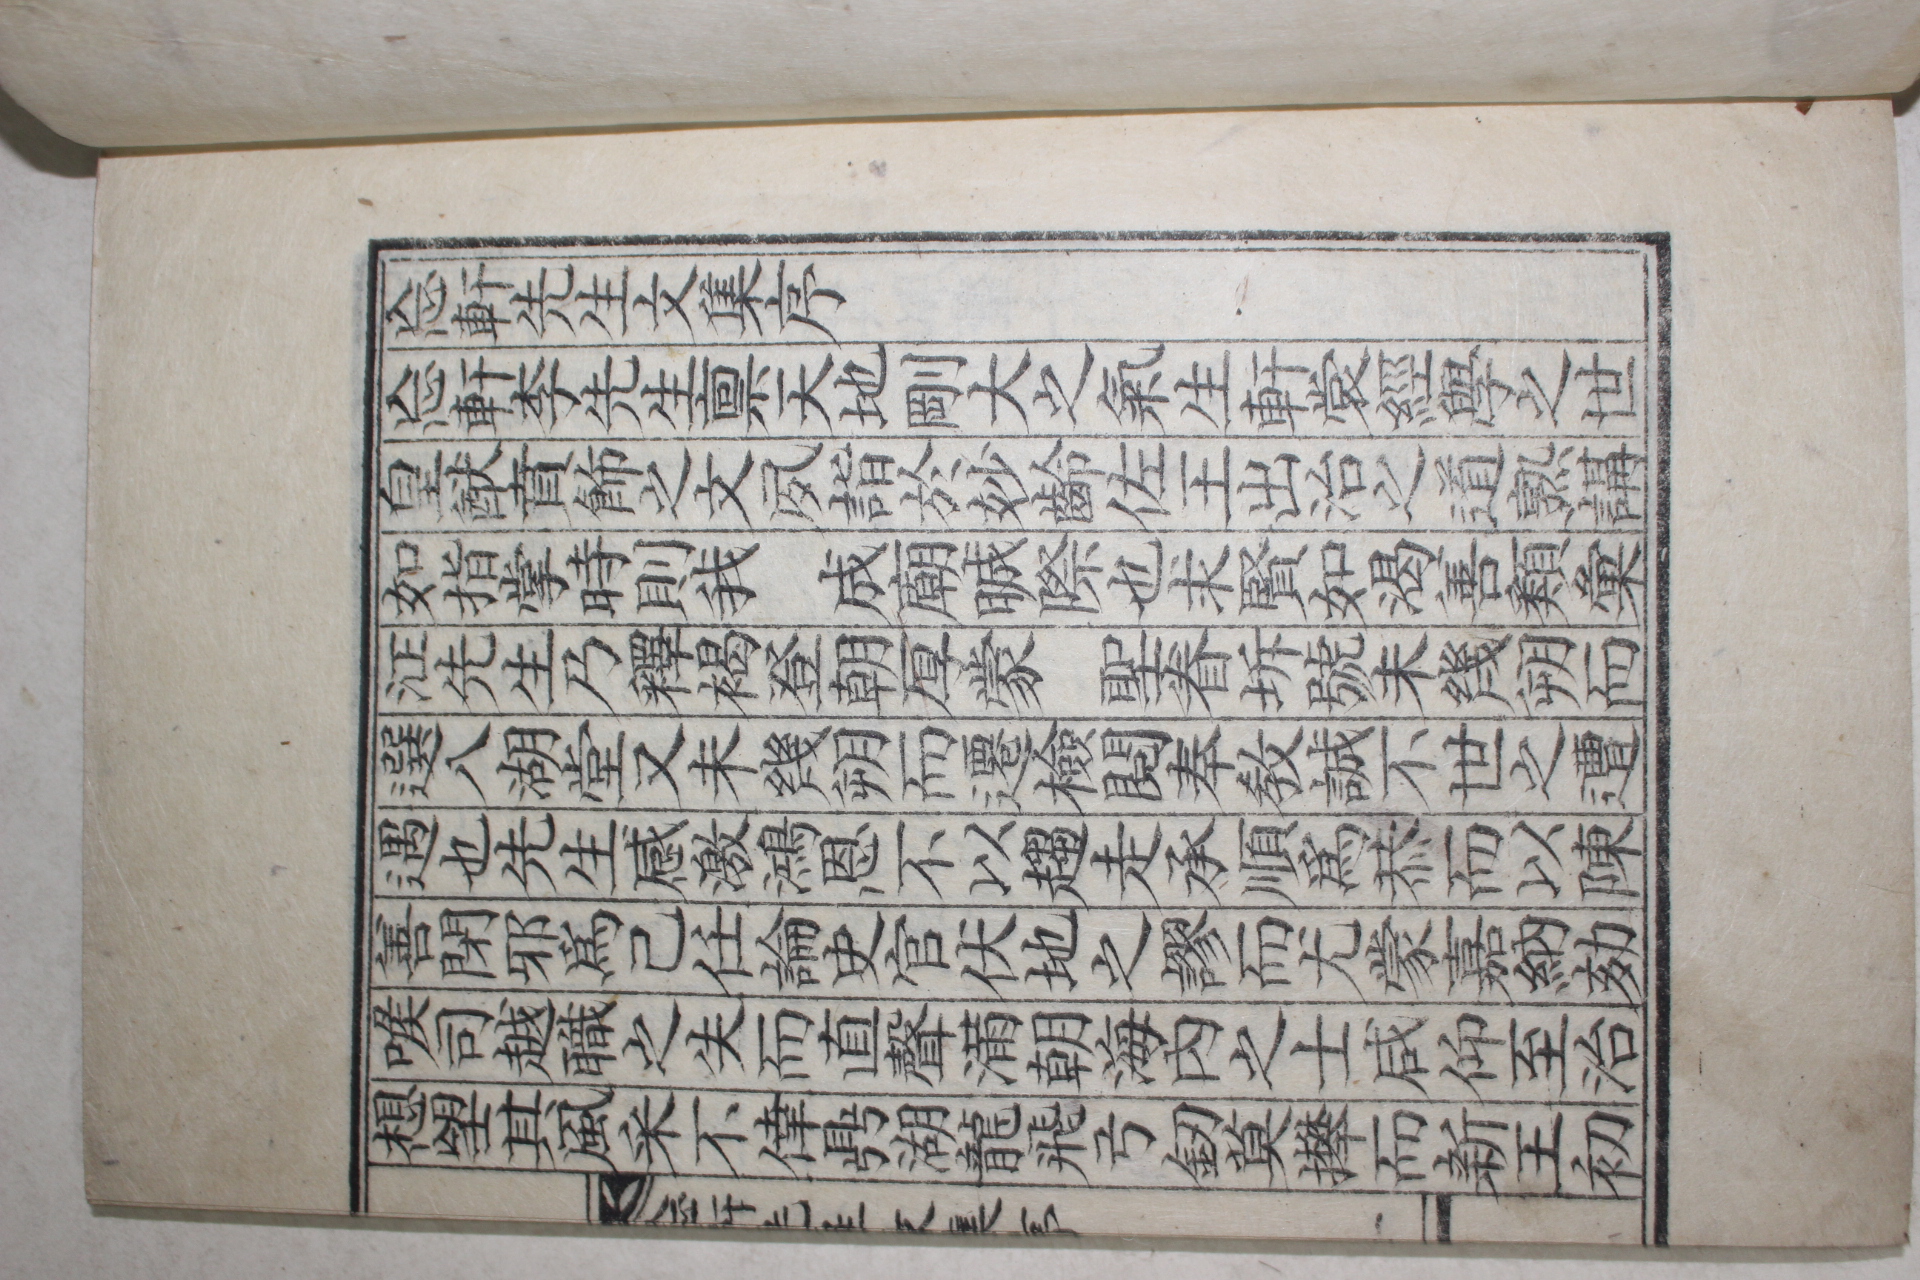 忩軒先生文集序
忩軒李先生禀天地剛大之氣生軒裳經學之世
皇猷賁餙之文夙詣於妙齡佐王出治之道熟講
如指掌時則我　成廟晠際也求賢如渴善類彙
征先生乃釋褐登朝厚蒙　聖眷坼號未幾朔而
選入湖堂又未幾朔而遷檢閱奉敎誠不世之遭
遇也先生感激鴻恩不以趨走承順爲恭而以陳
善閉邪爲己任論史官伏地之謬而尤蒙嘉納劾
喉司越職之失而直聲滿朝海內之士咸仰至治
想望其風采不偉鼎湖龍飛弓釰莫攀而新王初
忩軒先生文集序
一